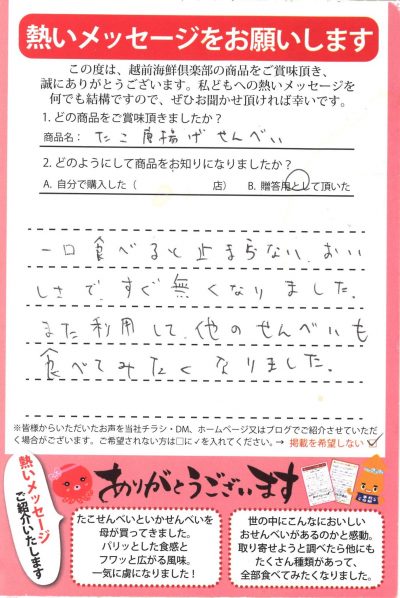 熱いメッセージをお願いします
この度は、越前海鮮倶楽部の商品をご賞味頂き、
誠にありがとうございます。私どもへの熱いメッセージを
何でも結構ですので、ぜひお聞かせ頂ければ幸いです。
1. どの商品をご賞味頂きましたか？
商品名： たこ唐揚げせんべい
2. どのようにして商品をお知りになりましたか？
A. 自分で購入した（ 店） B. 贈答用として頂いた
一口食べると止まらない、おい
しさで、すぐ無くなりました。
また利用して、他のせんべいも
食べてみたくなりました。
※皆様からいただいたお声を当社チラシ・DM、ホームページ又はブログでご紹介させていただ
く場合がございます。ご希望されない方は□に✓を入れてください。→ 掲載を希望しない ☑
熱いメッセージ
ご紹介いたします
ありがとうございます
たこせんべいといかせんべいを
母が買ってきました。
パリッとした食感と
フワッと広がる風味。
一気に虜になりました！
世の中にこんなにおいしい
おせんべいがあるのかと感動。
取り寄せようと調べたら他にも
たくさん種類があって、
全部食べてみたくなりました。